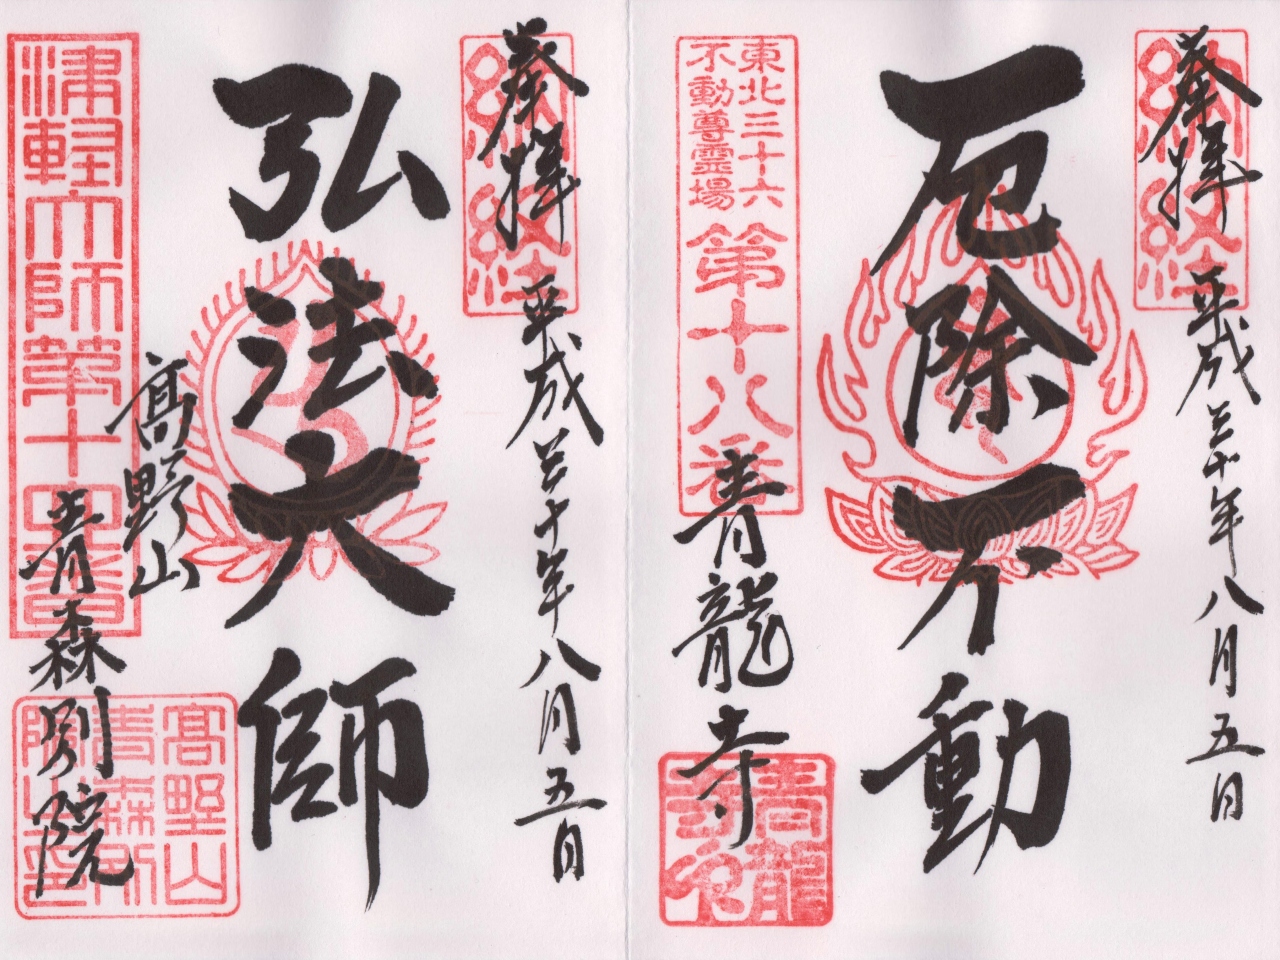 奉拝
納経
平成三十年八月五日
厄除不動
東北三十六
不動尊霊場
第十八番
青龍寺
青龍
寺印
奉拝
納経
平成三十年八月五日
弘法大師
高野山
青森別院
津軽大師第十四番
高野山
青森別
院之印